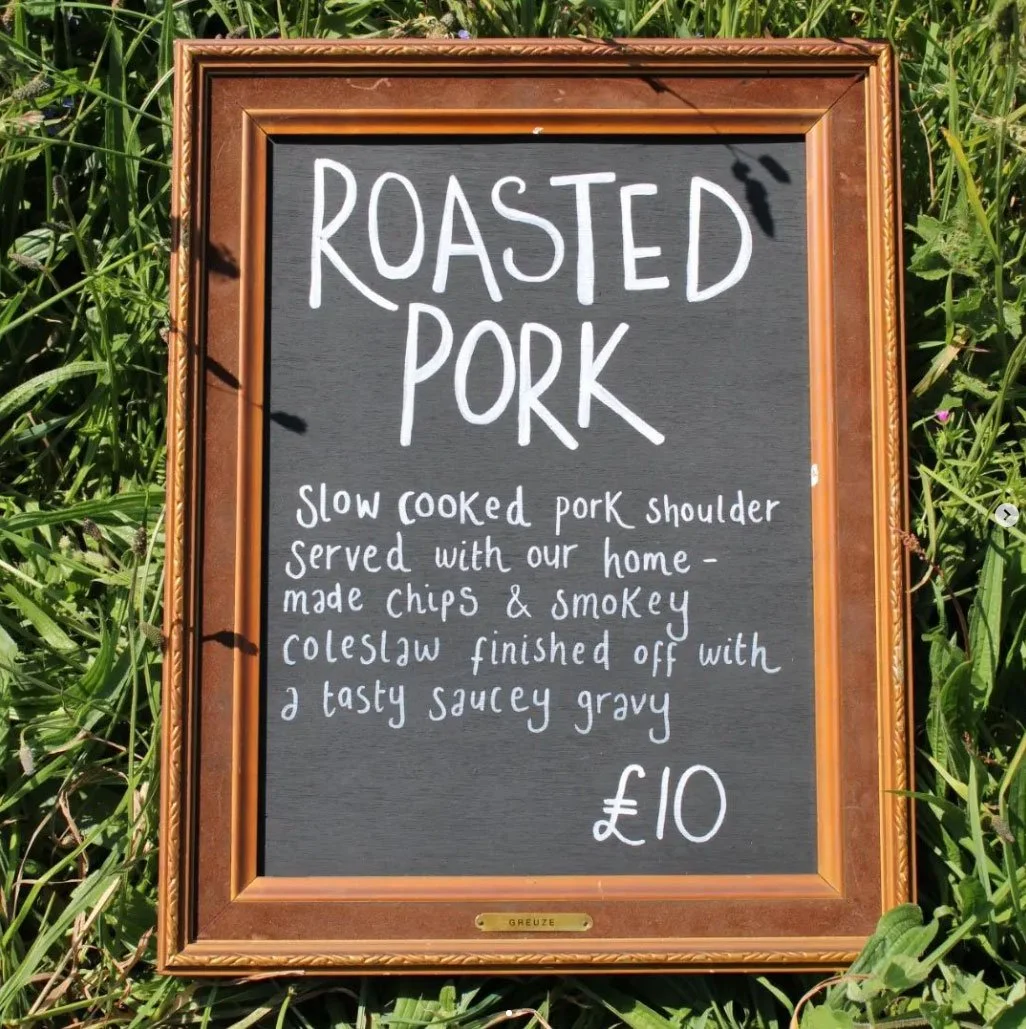 ROASTED
PORK
Slow cooked pork shoulder
served with our home -
made chips & smokey
coleslaw finished off with
a tasty saucey gravy
£10
GREUZE